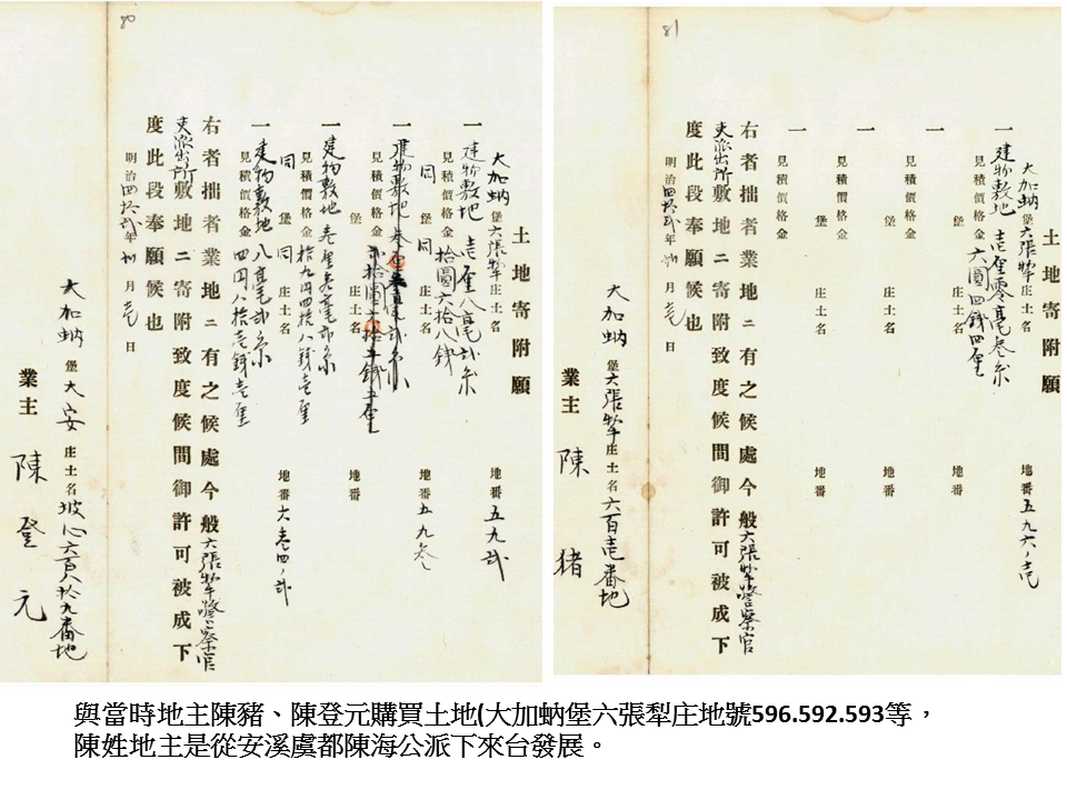 80
土地寄附願
大加蚋堡六張犂庄土名 地番五九弍
一建物敷地 壱厘八毫弍糸
見積價格金拾圓六拾八錢
同堡同庄土名 地番五九叁
一建物敷地
見積價格金弍拾圓
堡 庄土名 地番
一建物敷地 壱厘 毫弍糸
見積價格金拾九円四拾八錢壱厘
同堡同庄土名 地番六壱四ノ弍
一建物敷地 八毫弍糸
見積價格金四円八拾壱錢壱厘
右者拙者業地ニ有之候處今般六張犂警察官
吏派出所敷地ニ寄附致度候間御許可被成下
度此段奉願候也
明治四拾弍年 月 日
大加蚋堡大安庄土名坡心六百八拾九番地
業主 陳登元
81
土地寄附願
大加蚋堡六張犂庄土名 地番五九六ノ壱
一建物敷地 壱厘零毫叁糸
見積價格金六圓四錢四厘
堡 庄土名 地番
一
見積價格金
堡 庄土名 地番
一
見積價格金
堡 庄土名 地番
一
見積價格金
右者拙者業地ニ有之候處今般六張犂警察官
吏派出所敷地ニ寄附致度候間御許可被成下
度此段奉願候也
明治四拾弍年 月 日
大加蚋堡六張犂庄土名六百壱番地
業主 陳猪
與當時地主陳豬、陳登元購買土地(大加蚋堡六張犁庄地號596.592.593等，
陳姓地主是從安溪虞都陳海公派下來台發展。